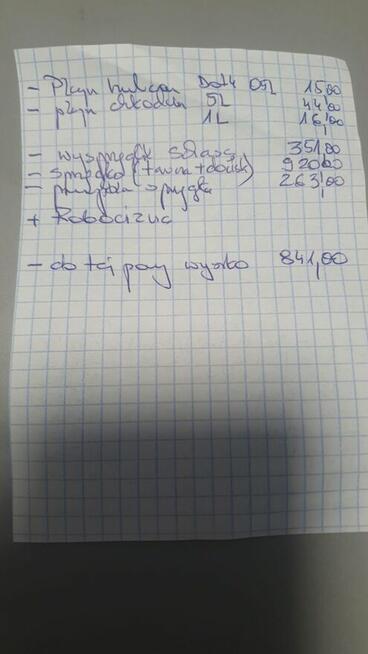 - Płyn hamulcow Dot4 05L 15,00
- płyn chłodzen 5L 44,00
1L 16,00
- wysprzęglik SACHS 351,00
- sprzęgło (tarcza + docisk) 920,00
- sprzęgła 263,00
+ Robocizna
- do tej pory wyszło 841,00